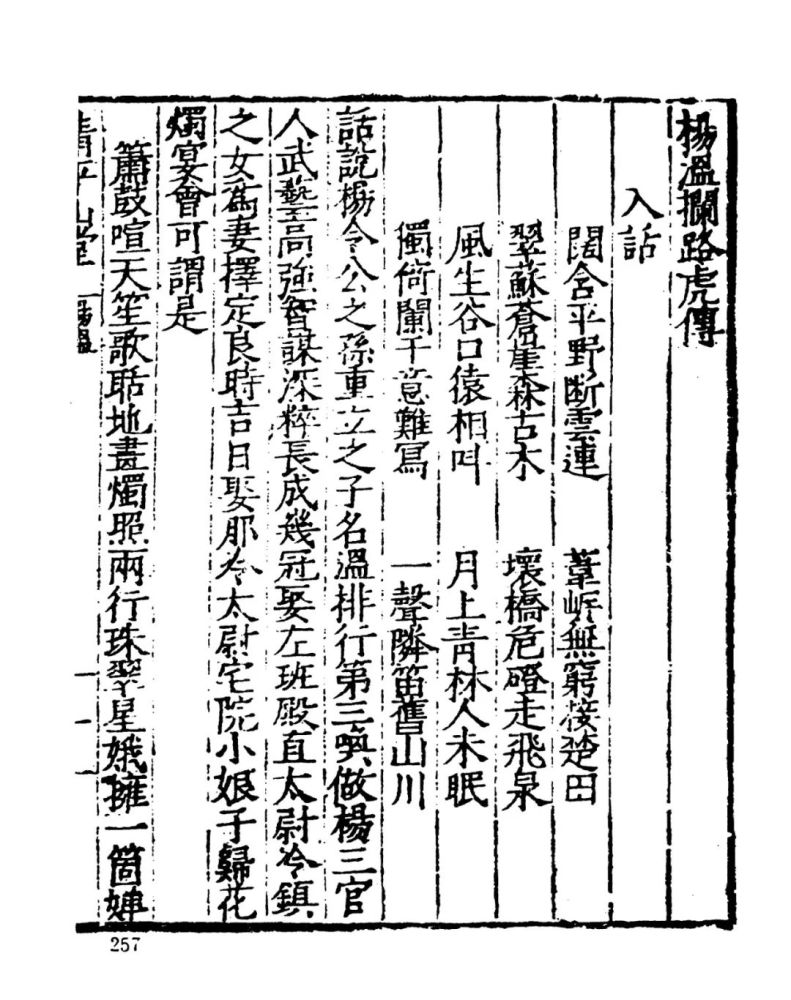 楊溫攔路虎傳
入話
闊含平野斷雲連　葦岸無窮接楚田
翠蘇蒼崖森古木　壞橋危磴走飛泉
風生谷口猿相呌　月上青林人未眠
獨倚闌干意難寫　一聲隣笛舊山川
話說楊令公之孫重立之子名溫排行第三喚做楊三官
人武藝高強智謀深粹長成幾冠娶左班殿直太尉冷鎮
之女爲妻擇定良時吉日娶那冷太尉宅院小娘子歸花
燭宴會可謂是
簫鼓喧天笙歌聒地畫燭照兩行珠翠星娥擁一箇嬋
清平山堂
257